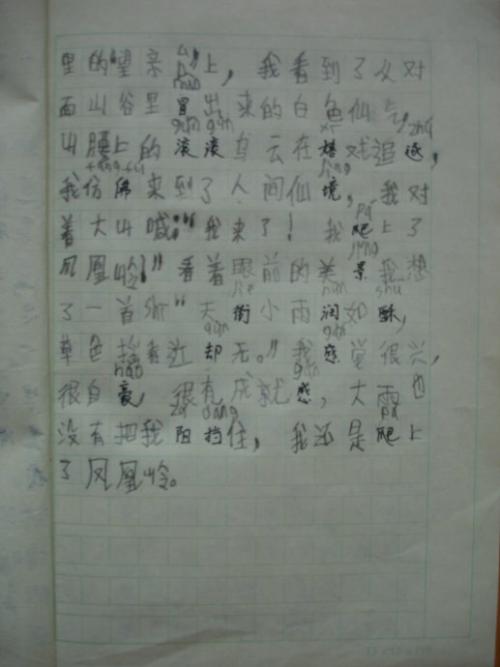 里的"望京山"上，我看到了义对
mào
面山谷里冒出来的白色仙气，
gǔn gǔn xī zhú
山腰上的滚滚乌云在嬉戏追逐，
fǎng fú jìng
我仿佛来到了人间仙境，我对
pá
着大山喊："我来了！我爬上了
jǐng
凤凰岭！"看着眼前的美景我想
jiē rùn shū
了一首shī"天街小雨润如酥，
què gǎn
草色遥看近却无。"我感觉很兴，
háo
很自豪，很有成就感，大雨也
zǔ dǎng pá
没有把我阻挡住，我还是爬上
了凤凰岭。